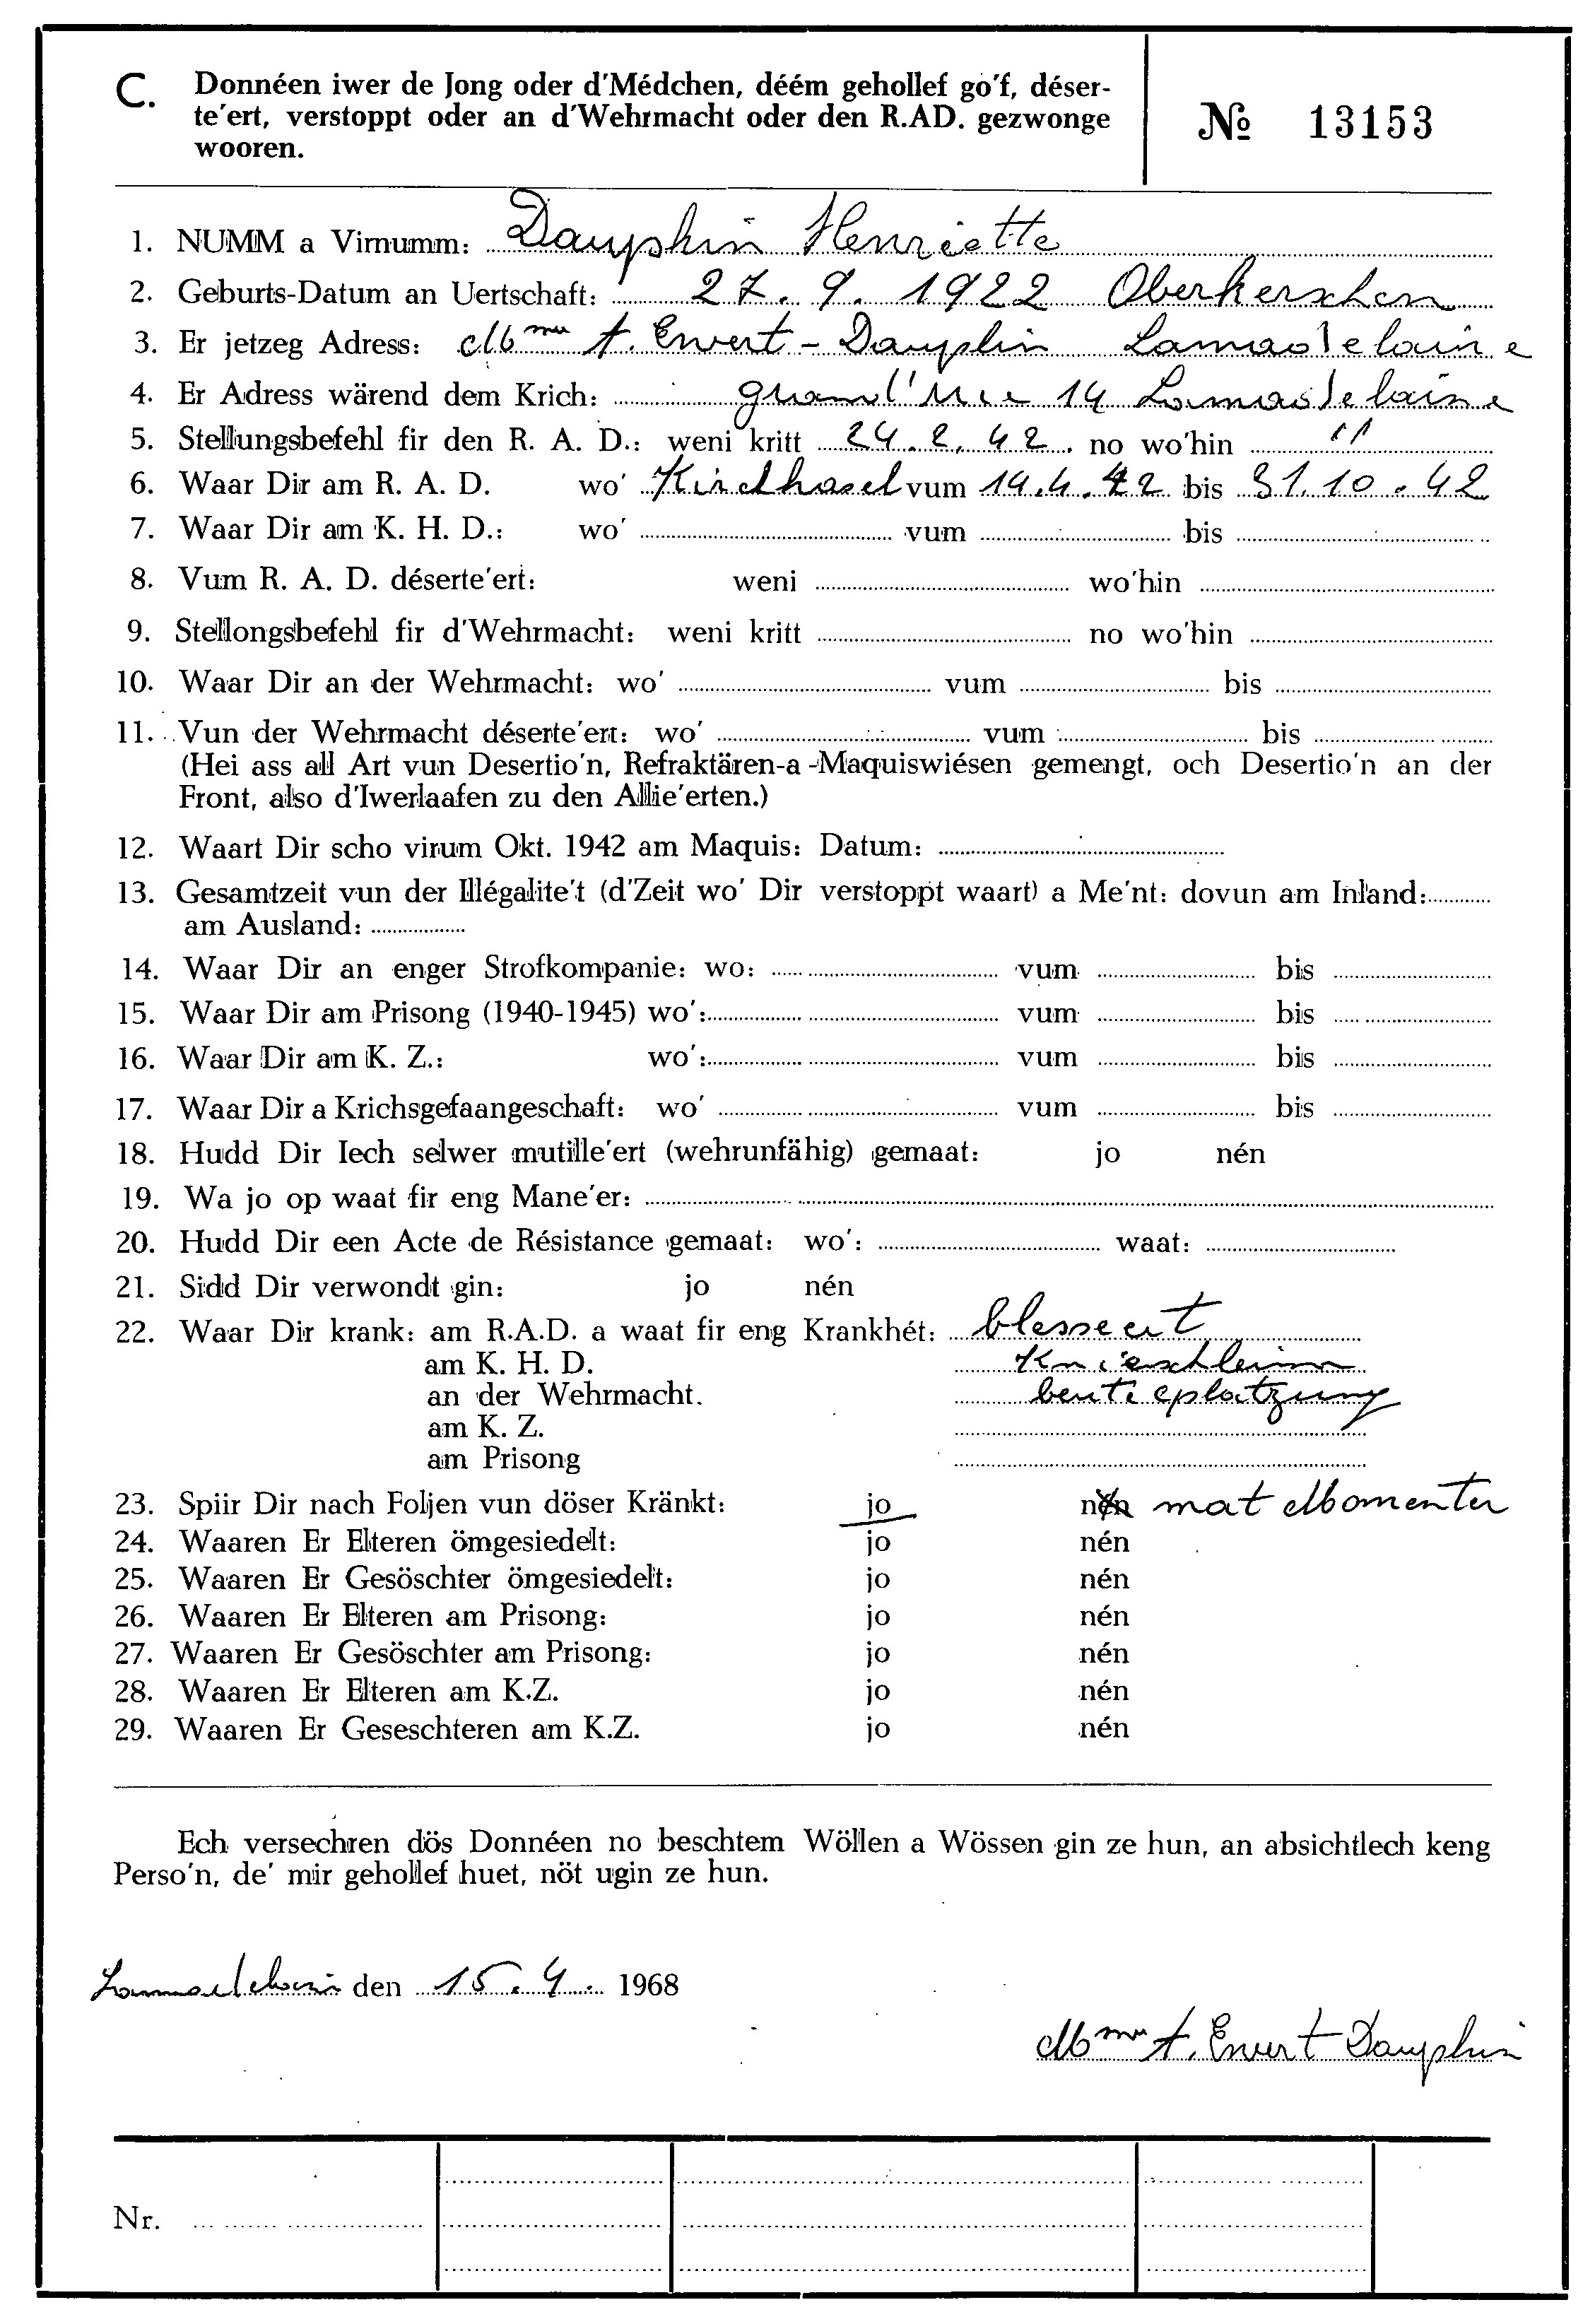 C. Donnéen iwer de Jong oder d'Médchen, déém gehollef go'f, déser-
te'ert, verstoppt oder an d'Wehrmacht oder den R.AD. gezwonge
wooren.
№ 13153
1. NUMM a Virnumm: Dauphin Henriette
2. Geburts-Datum an Uertschaft: 27. 9. 1922 Oberkerschen
3. Er jetzeg Adress: Mme A. Ewert - Dauphin Lamadelaine
4. Er Adress wärend dem Krich: grand'rue 14 Lamadelaine
5. Stellungsbefehl fir den R. A. D.: weni kritt 24.2.42. no wo'hin "
6. Waar Dir am R. A. D. wo' Kirchhasel vum 14.4.42 bis 31.10.42
7. Waar Dir am K. H. D.: wo' vum bis
8. Vum R. A. D. déserte'ert: weni wo'hin
9. Stellongsbefehl fir d'Wehrmacht: weni kritt no wo'hin
10. Waar Dir an der Wehrmacht: wo' vum bis
11. Vun der Wehrmacht déserte'ert: wo' vum bis
(Hei ass all Art vun Desertio'n, Refraktären-a-Maquiswiésen gemengt, och Desertio'n an der
Front, also d'Iwerlaafen zu den Allie'erten.)
12. Waart Dir scho virum Okt. 1942 am Maquis: Datum:
13. Gesamtzeit vun der Illégalite't (d'Zeit wo' Dir verstoppt waart) a Me'nt: dovun am Inland:
am Ausland:
14. Waar Dir an enger Strofkompanie: wo: vum bis
15. Waar Dir am Prisong (1940-1945) wo': vum bis
16. Waar Dir am K. Z.: wo': vum bis
17. Waar Dir a Krichsgefaangeschaft: wo' vum bis
18. Hudd Dir Iech selwer mutille'ert (wehrunfähig) gemaat: jo nén
19. Wa jo op waat fir eng Mane'er:
20. Hudd Dir een Acte de Résistance gemaat: wo': waat:
21. Sidd Dir verwondt gin: jo nén
22. Waar Dir krank: am R.A.D. a waat fir eng Krankhét: blesseert
am K. H. D. Knieschleim
an der Wehrmacht. beuteplatzung
am K. Z.
am Prisong
23. Spiir Dir nach Foljen vun döser Kränkt: jo nén mat Momenter
24. Waaren Er Elteren ömgesiedelt: jo nén
25. Waaren Er Gesöschter ömgesiedelt: jo nén
26. Waaren Er Elteren am Prisong: jo nén
27. Waaren Er Gesöschter am Prisong: jo nén
28. Waaren Er Elteren am K.Z. jo nén
29. Waaren Er Geseschteren am K.Z. jo nén
Ech versechren dös Donnéen no beschtem Wöllen a Wössen gin ze hun, an absichtlech keng
Perso'n, de' mir gehollef huet, nöt ugin ze hun.
Lamadelaine den 15. 4. 1968
Mme A. Ewert-Dauphin
Nr.